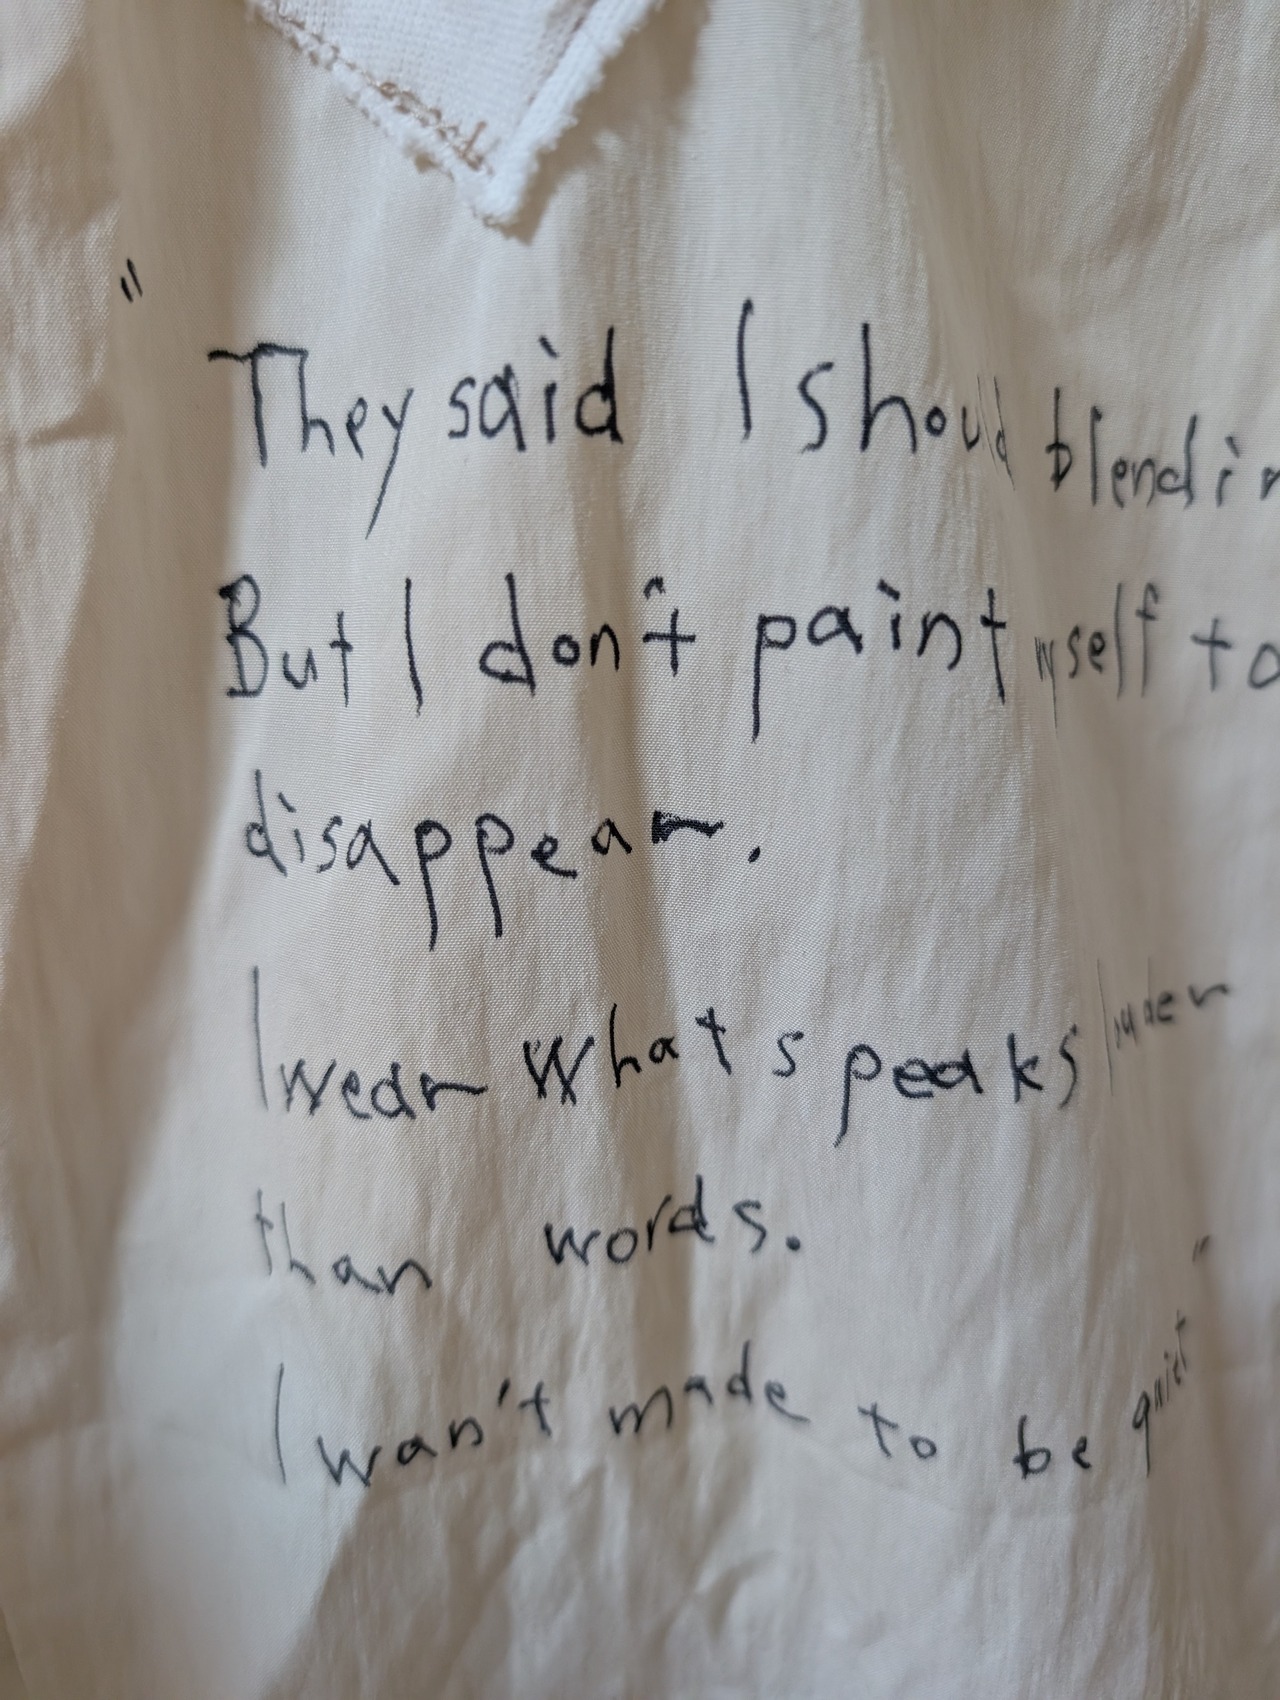 "They said I should blend in
But I don't paint myself to
disappear.
I wear what speaks louder
than words.
I wan't made to be quiet"